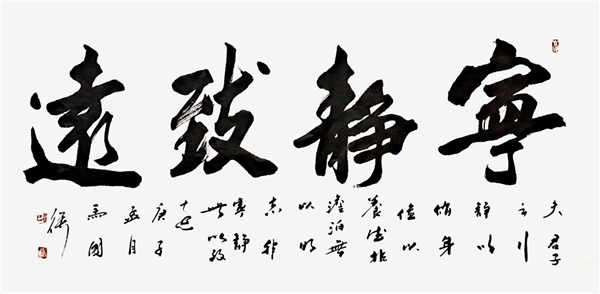 寧靜致遠
夫君子
之行
靜以
脩身
儉以
養德非
澹泊無
以明
志非
寧靜
無以致
庚子
月
馬國